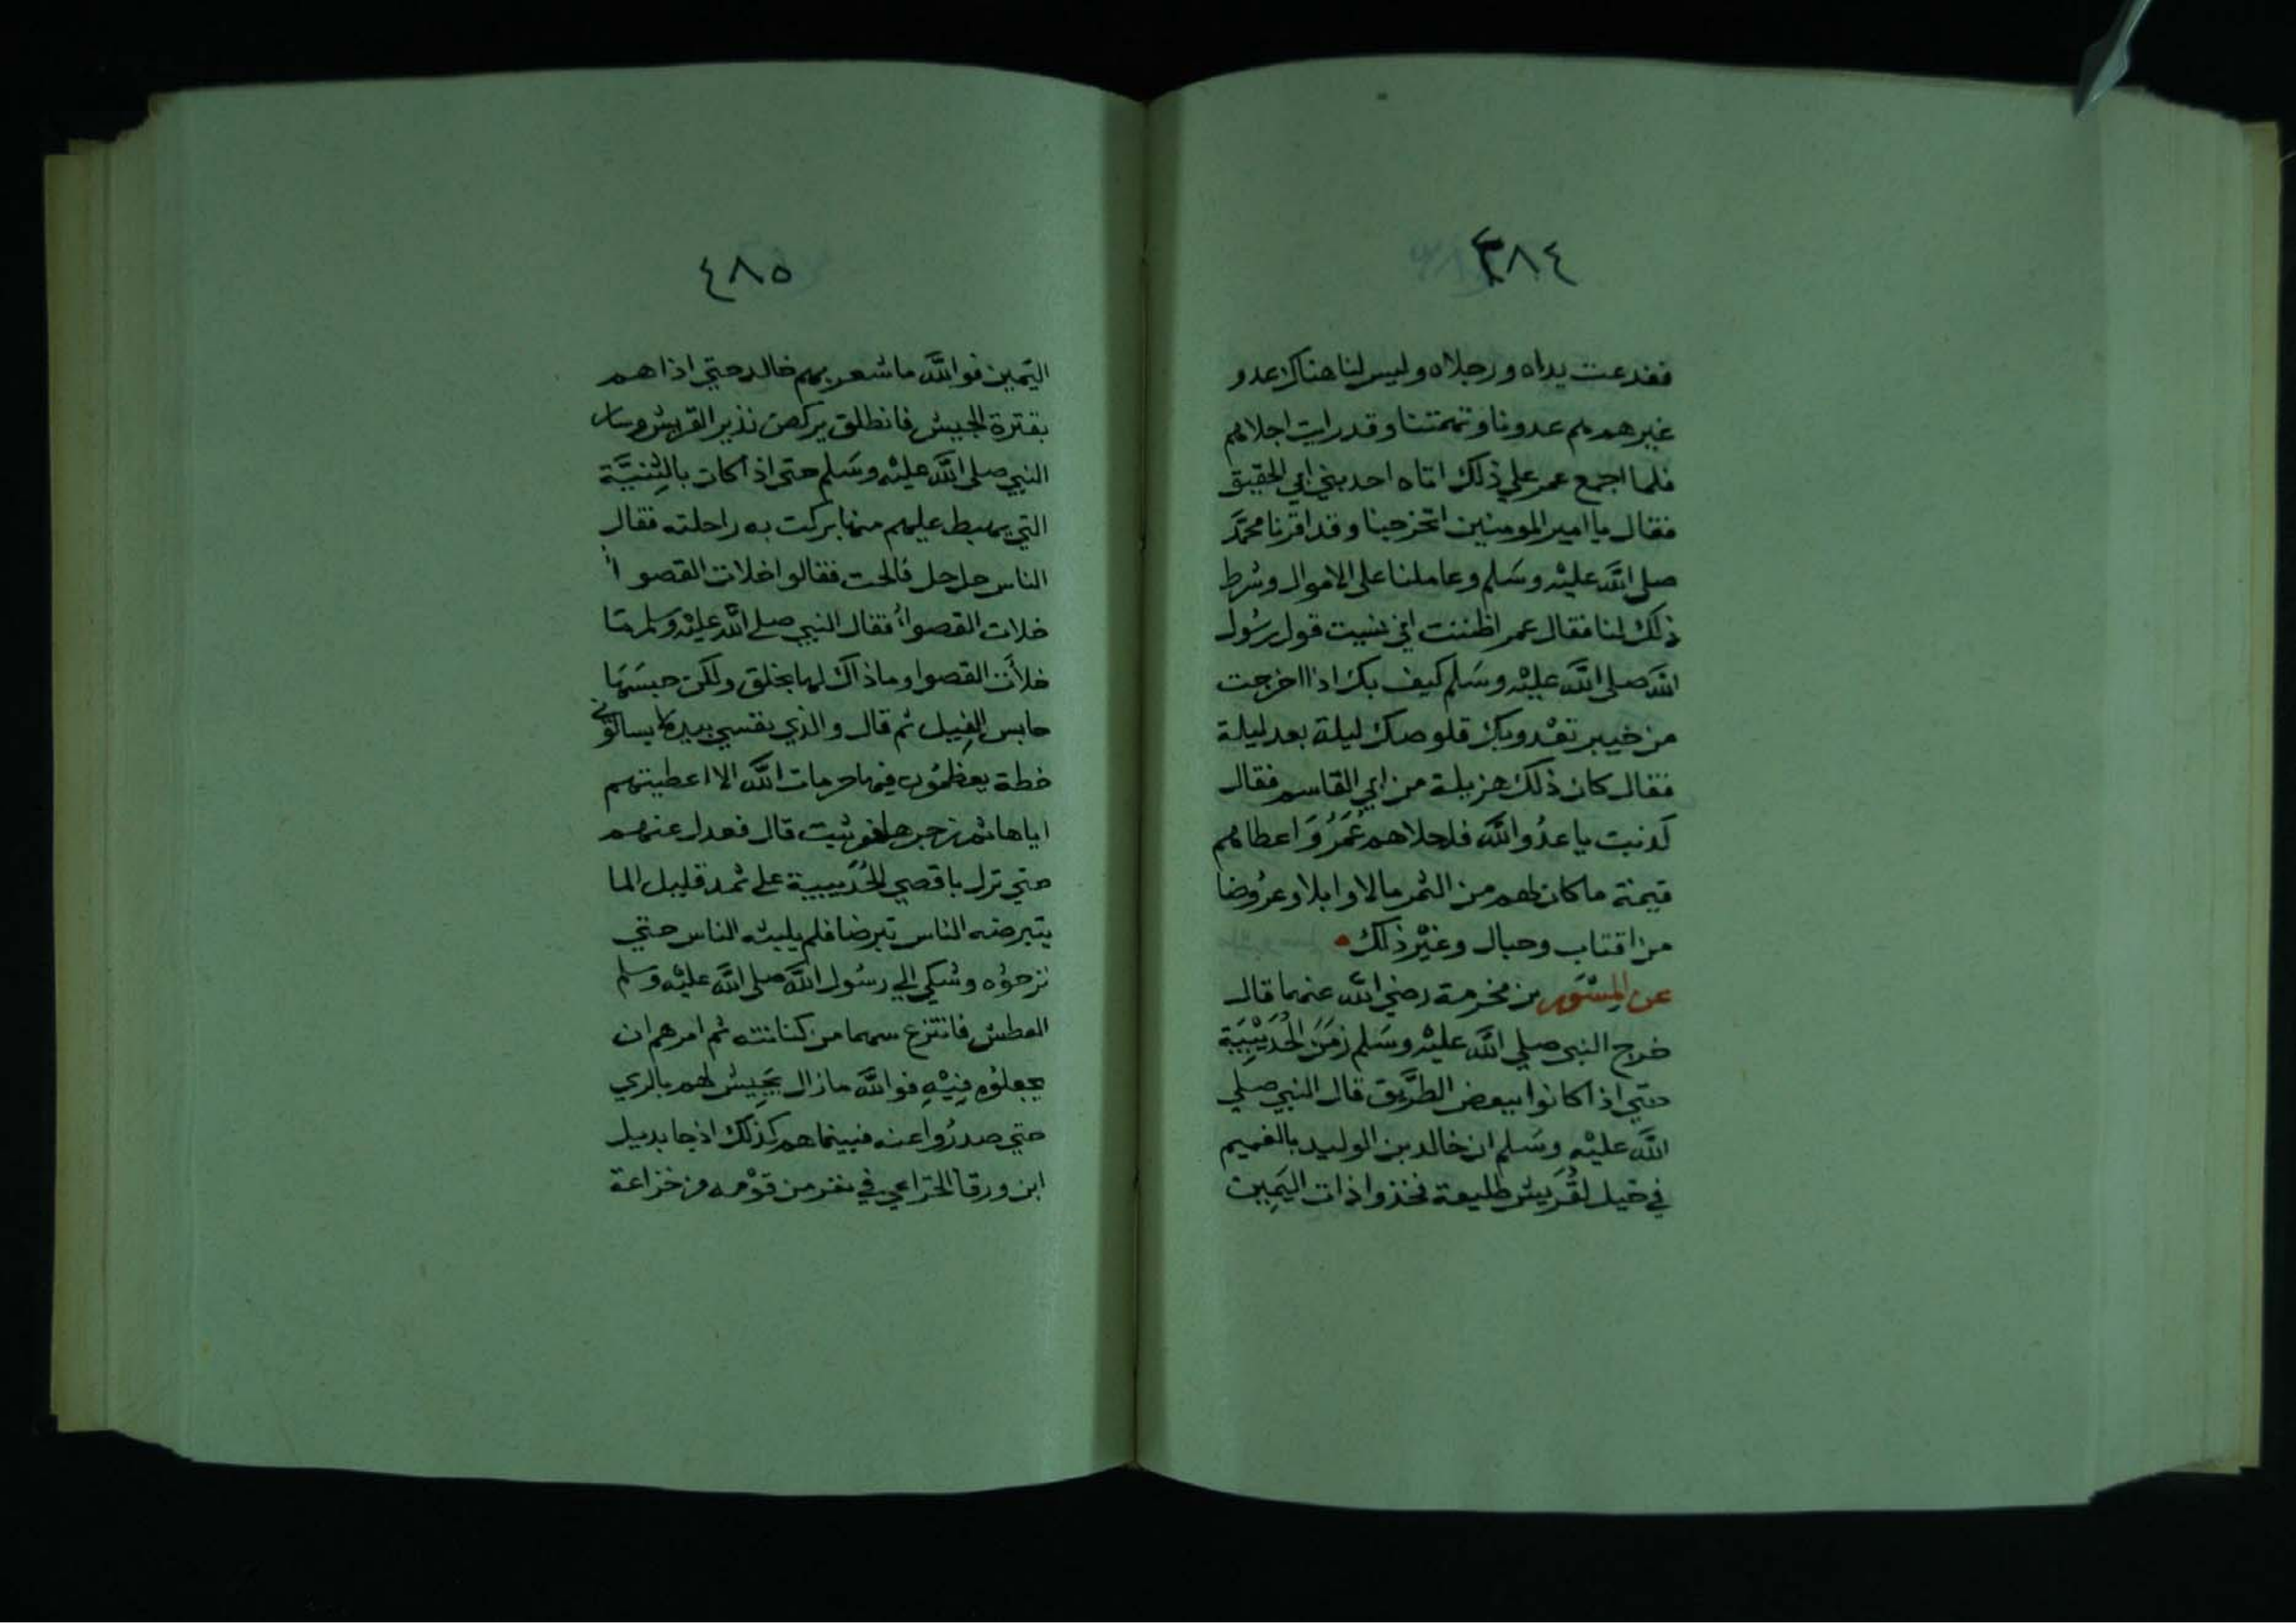 ٤٨٤
ففدعت يداه ورجلاه وليس لنا هناك عدو
غيرهم هم عدونا وتهمتنا وقد رايت اجلاهم
فلما اجمع عمر علي ذلك اتاه احد بني ابي الحقيق
فقال يا امير المومنين اتخرجنا وقد اقرنا محمَّد
صلى اللَّه عليْه وسَلم وعاملنا على الاموال وشرط
ذلك لنا فقال عمر اظننت اني نسيت قول رسُول
اللَّه صلى اللَّه عليْه وسَلم كيف بك اذا اخرجت
من خيبر تعْدو بك قلوصك ليلة بعد ليلة
فقال كان ذلك هزيلة من ابي القاسم فقال
كذبت يا عدُو اللَّه فاجلاهم عُمَرُ وَاعطاهم
قيمة ما كان لهم من الثمر مالا وابلا وعرُوضا
من اقتاب وحبال وغيْر ذلك
عن المِسْوَر بن مخرمة رضي اللَّه عنهما قال
خرج النبي صلي اللَّه عليْه وسَلم زمَنَ الحُدَيْبِيَة
حتي اذا كانوا ببعض الطَّريق قال النبي صلي
اللَّه عليْه وسَلم ان خالد بن الوليد بالغميم
في خيل لقُرَيش طليعة فخذوا ذات اليَمِين
٤٨٥
اليَمين فواللَّه ما شعر بهم خالد حتي اذا هم
بقترة الجيش فانطلق يركض نذير القريش وسار
النبي صلى اللَّه عليْه وسَلم حتى اذا كان بالثِنيَّة
التي يهبط عليهم منها بركت به راحلته فقال
الناس حل حل فالحت فقالوا خلات القصوا
خلات القصوا فقال النبي صلى اللَّه عليْه وسلم مَا
خلأت القصوا وما ذاك لها بخلق ولكن حبسَهَا
حابس الفِيل ثم قال والذي نفسي بيده لا يسالوني
خطة يعظمُون فيها حرمات اللَّه الا اعطيتهم
اياها ثم زجرها فوثبت قال فعدل عنهم
حتي نزل باقصي الحُدَيبية على ثمد قليل الما
يتبرضه الناس تبرضا فلم يلبثه الناس حتي
نزحوُه وشكي الي رسُول اللَّه صلى اللَّه عليْه وسلم
العطش فانتزع سهما من كنانته ثم امرهم ان
يجعلوُه فِيْهِ فواللَّه ما زال يَجِيش لهم بالري
حتي صدرُوا عنه فبينما هم كذلك اذ جا بديل
ابن ورقا الخزاعي في نفر من قوْمه من خزاعة